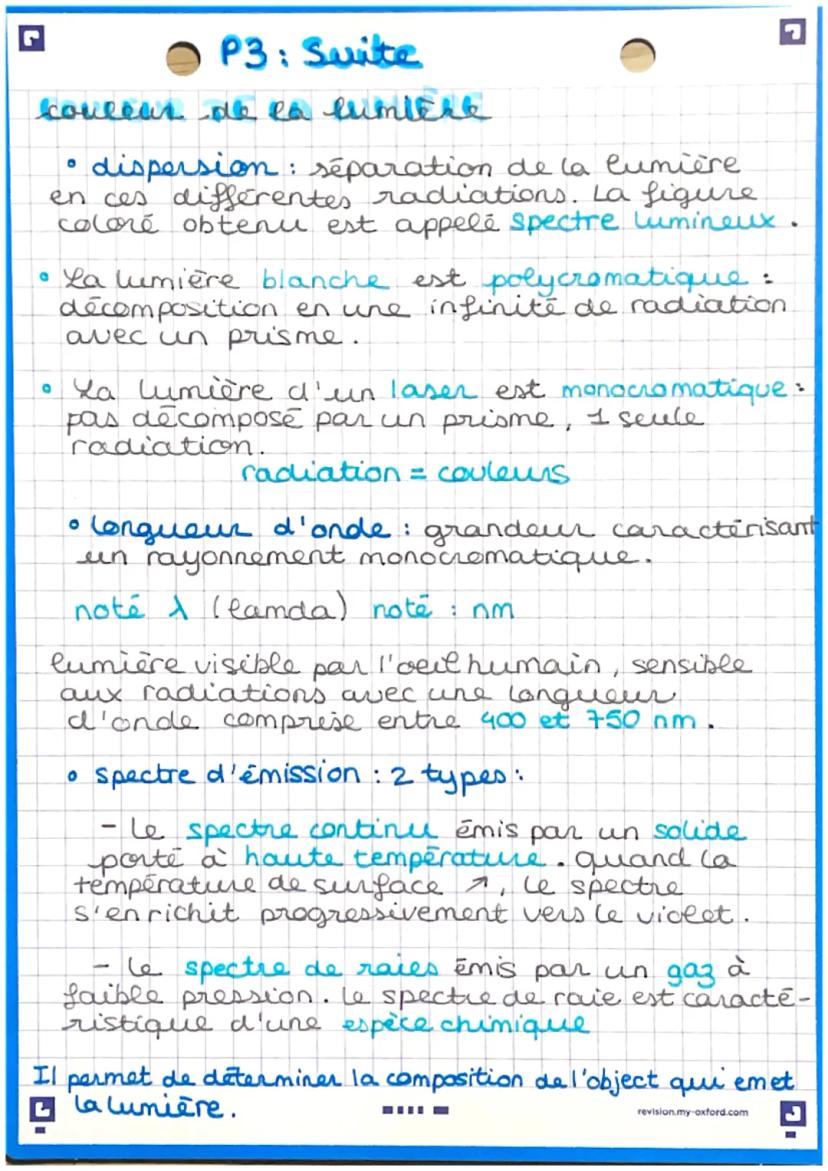 P3 : Suite
couleur de la lumière
• dispersion : séparation de la lumière
en ces différentes radiations. La figure
coloré obtenu est appelé spectre lumineux.
• La lumière blanche est polycromatique :
décomposition en une infinité de radiation
avec un prisme.
• La lumière d'un laser est monocromatique :
pas décomposé par un prisme, 1 seule
radiation.
radiation = couleurs
• longueur d'onde : grandeur caractérisant
un rayonnement monocromatique.
noté λ (lamda) noté : nm
lumière visible par l'oeil humain, sensible
aux radiations avec une longueur
d'onde comprise entre 400 et 750 nm.
• spectre d'émission : 2 types :
- le spectre continu émis par un solide
porté à haute température. quand la
température de surface ↗, le spectre
s'enrichit progressivement vers le violet.
- le spectre de raies émis par un gaz à
faible pression. le spectre de raie est caracté-
ristique d'une espèce chimique
Il permet de déterminer la composition de l'object qui emet
la lumière.
revision.my-oxford.com